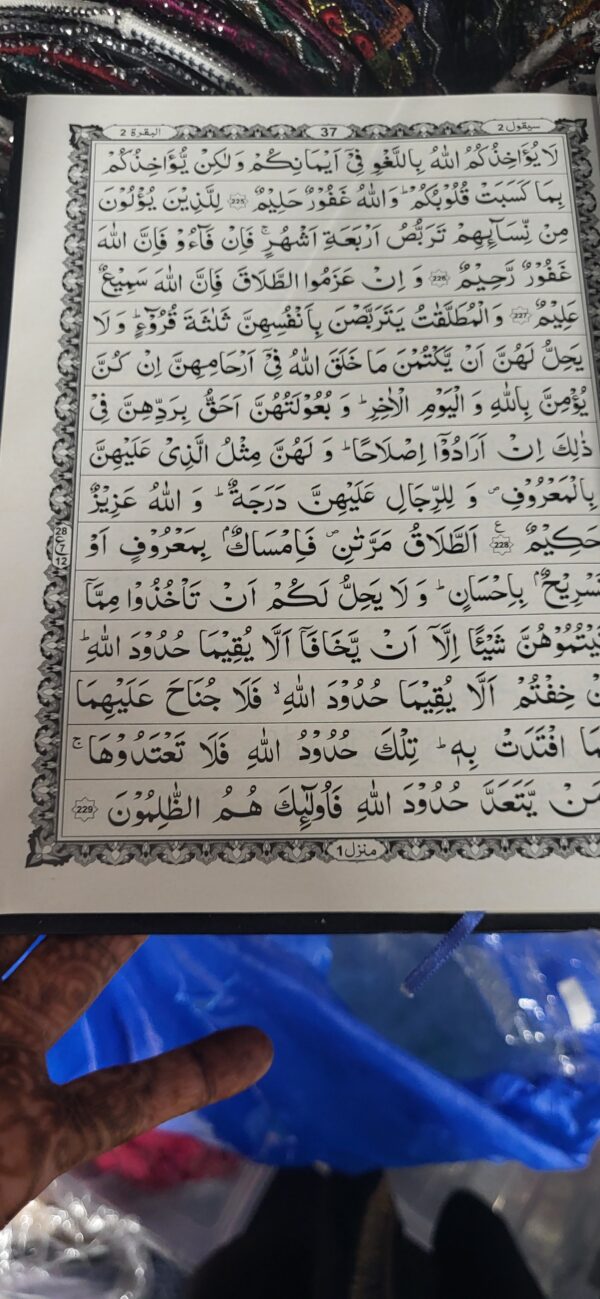 سيقول 2
37
البقرة 2
لَا يُؤَاخِذُكُمُ اللّٰهُ بِاللَّغْوِ فِیْۤ اَیْمَانِكُمْ وَ لٰكِنْ یُّؤَاخِذُكُمْ
بِمَا كَسَبَتْ قُلُوْبُكُمْ ؕ وَ اللّٰهُ غَفُوْرٌ حَلِیْمٌ 225 لِلَّذِیْنَ یُؤْلُوْنَ
مِنْ نِّسَآئِهِمْ تَرَبُّصُ اَرْبَعَةِ اَشْهُرٍ ۚ فَاِنْ فَآءُوْ فَاِنَّ اللّٰهَ
غَفُوْرٌ رَّحِیْمٌ 226 وَ اِنْ عَزَمُوا الطَّلَاقَ فَاِنَّ اللّٰهَ سَمِیْعٌ
عَلِیْمٌ 227 وَ الْمُطَلَّقٰتُ یَتَرَبَّصْنَ بِاَنْفُسِهِنَّ ثَلٰثَةَ قُرُوْٓءٍ ؕ وَ لَا
یَحِلُّ لَهُنَّ اَنْ یَّكْتُمْنَ مَا خَلَقَ اللّٰهُ فِیْۤ اَرْحَامِهِنَّ اِنْ كُنَّ
یُؤْمِنَّ بِاللّٰهِ وَ الْیَوْمِ الْاٰخِرِ ؕ وَ بُعُوْلَتُهُنَّ اَحَقُّ بِرَدِّهِنَّ فِیْ
ذٰلِكَ اِنْ اَرَادُوْۤا اِصْلَاحًا ؕ وَ لَهُنَّ مِثْلُ الَّذِیْ عَلَیْهِنَّ
بِالْمَعْرُوْفِ ۪ وَ لِلرِّجَالِ عَلَیْهِنَّ دَرَجَةٌ ؕ وَ اللّٰهُ عَزِیْزٌ
حَكِیْمٌ 228 ع اَلطَّلَاقُ مَرَّتٰنِ ۪ فَاِمْسَاكٌۢ بِمَعْرُوْفٍ اَوْ
28
ع 7
12
تَسْرِیْحٌۢ بِاِحْسَانٍ ؕ وَ لَا یَحِلُّ لَكُمْ اَنْ تَاْخُذُوْا مِمَّاۤ
تَیْتُمُوْهُنَّ شَیْـًٔا اِلَّاۤ اَنْ یَّخَافَاۤ اَلَّا یُقِیْمَا حُدُوْدَ اللّٰهِ ؕ
نْ خِفْتُمْ اَلَّا یُقِیْمَا حُدُوْدَ اللّٰهِ ۙ فَلَا جُنَاحَ عَلَیْهِمَا
مَا افْتَدَتْ بِهٖ ؕ تِلْكَ حُدُوْدُ اللّٰهِ فَلَا تَعْتَدُوْهَا ۚ
مَنْ یَّتَعَدَّ حُدُوْدَ اللّٰهِ فَاُولٰٓئِكَ هُمُ الظّٰلِمُوْنَ 229
منزل 1